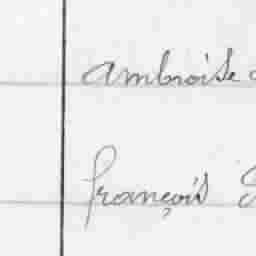 ambroise
françois